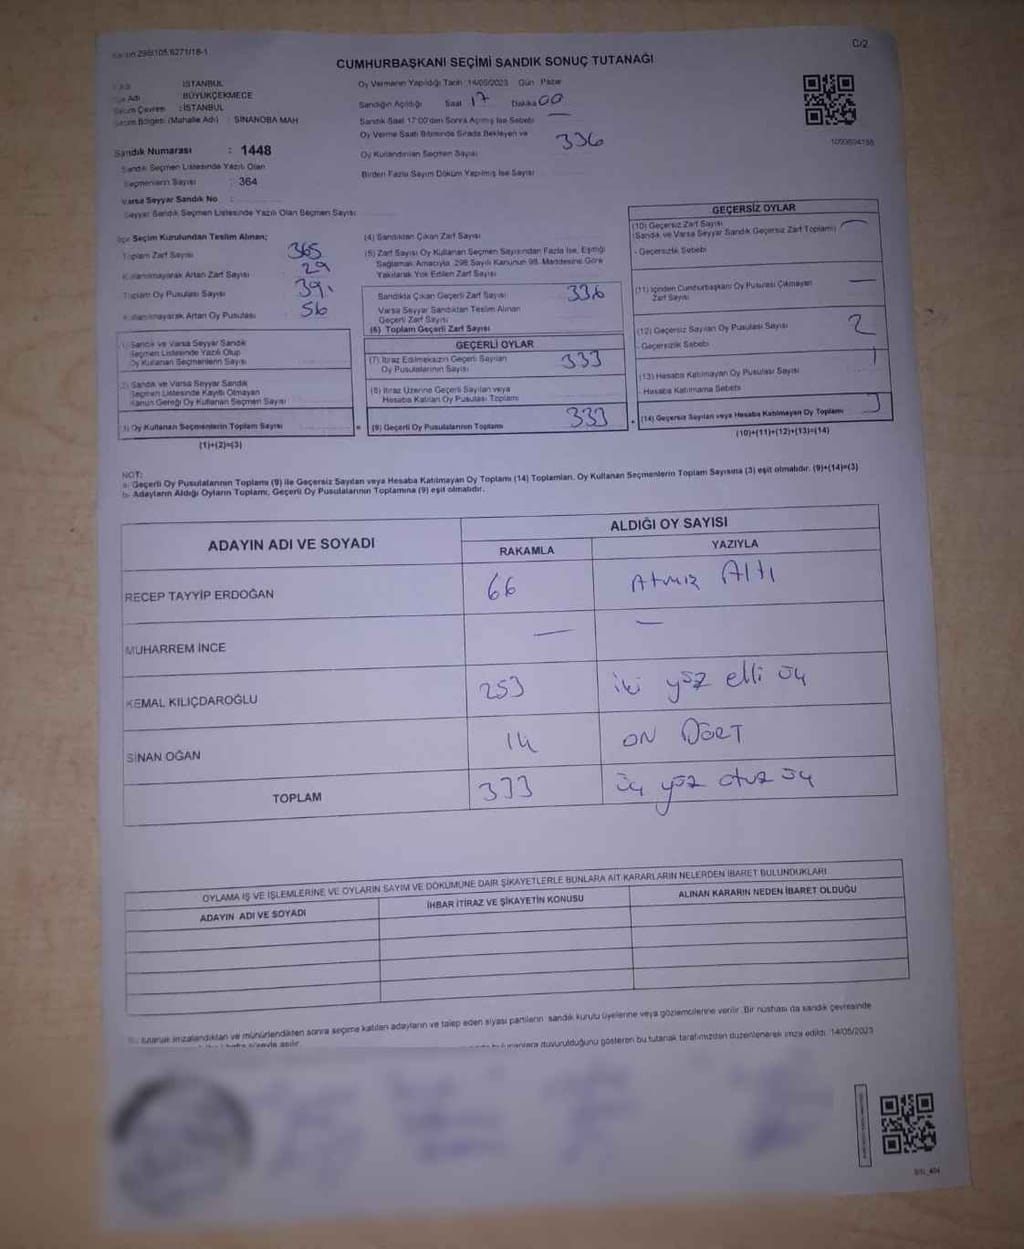 CUMHURBAŞKANI SEÇİMİ SANDIK SONUÇ TUTANAĞI
İSTANBUL
BÜYÜKÇEKMECE
: İSTANBUL
Seçim Bölgesi (Mahalle Adı) : SİNANOBA MAH
Sandık Numarası : 1448
Sandık Seçmen Listesinde Yazılı Olan
Seçmenlerin Sayısı : 364
Varsa Seyyar Sandık No
Seyyar Sandık Seçmen Listesinde Yazılı Olan Seçmen Sayısı
Oy Vermenin Yapıldığı Tarih 14/05/2023 Gün Pazar
Sandığın Açıldığı Saat 17 Dakika 00
Sandık Saat 17:00'den Sonra Açılmış İse Sebebi —
Oy Verme Saati Bitiminde Sırada Bekleyen ve
Oy Kullandırılan Seçmen Sayısı 336
Birden Fazla Sayım Döküm Yapılmış İse Sayısı
İlçe Seçim Kurulundan Teslim Alınan;
Toplam Zarf Sayısı 365
Kullanılmayarak Artan Zarf Sayısı 29
Toplam Oy Pusulası Sayısı
Kullanılmayarak Artan Oy Pusulası 56
1) Sandık ve Varsa Seyyar Sandık
Seçmen Listesinde Yazılı Olup
Oy Kullanan Seçmenlerin Sayısı
2) Sandık ve Varsa Seyyar Sandık
Seçmen Listesinde Kayıtlı Olmayan
Kanun Gereği Oy Kullanan Seçmen Sayısı
3) Oy Kullanan Seçmenlerin Toplam Sayısı
(1)+(2)=(3)
(4) Sandıktan Çıkan Zarf Sayısı
(5) Zarf Sayısı Oy Kullanan Seçmen Sayısından Fazla İse, Eşitliği
Sağlamak Amacıyla, 298 Sayılı Kanunun 98. Maddesine Göre
Yakılarak Yok Edilen Zarf Sayısı
Sandıkta Çıkan Geçerli Zarf Sayısı 336
Varsa Seyyar Sandıktan Teslim Alınan
Geçerli Zarf Sayısı
(6) Toplam Geçerli Zarf Sayısı
GEÇERLİ OYLAR
(7) İtiraz Edilmeksizin Geçerli Sayılan
Oy Pusulalarının Sayısı 333
(8) İtiraz Üzerine Geçerli Sayılan veya
Hesaba Katılan Oy Pusulası Toplamı
(9) Geçerli Oy Pusulalarının Toplamı 333
GEÇERSİZ OYLAR
(10) Geçersiz Zarf Sayısı
(Sandık ve Varsa Seyyar Sandık Geçersiz Zarf Toplamı)
- Geçersizlik Sebebi
(11) İçinden Cumhurbaşkanı Oy Pusulası Çıkmayan
Zarf Sayısı —
(12) Geçersiz Sayılan Oy Pusulası Sayısı 2
- Geçersizlik Sebebi
(13) Hesaba Katılmayan Oy Pusulası Sayısı 1
- Hesaba Katılmama Sebebi
(14) Geçersiz Sayılan veya Hesaba Katılmayan Oy Toplamı
(10)+(11)+(12)+(13)=(14)
NOT:
a- Geçerli Oy Pusulalarının Toplamı (9) ile Geçersiz Sayılan veya Hesaba Katılmayan Oy Toplamı (14) Toplamları, Oy Kullanan Seçmenlerin Toplam Sayısına (3) eşit olmalıdır. (9)+(14)=(3)
b- Adayların Aldığı Oyların Toplamı, Geçerli Oy Pusulalarının Toplamına (9) eşit olmalıdır.
ADAYIN ADI VE SOYADI
ALDIĞI OY SAYISI
RAKAMLA YAZIYLA
RECEP TAYYİP ERDOĞAN 66 Atmış Altı
MUHARREM İNCE — —
KEMAL KILIÇDAROĞLU 253 iki yüz elli üç
SİNAN OĞAN 14 ON DÖRT
TOPLAM 333 üç yüz otuz üç
OYLAMA İŞ VE İŞLEMLERİNE VE OYLARIN SAYIM VE DÖKÜMÜNE DAİR ŞİKAYETLERLE BUNLARA AİT KARARLARIN NELERDEN İBARET BULUNDUKLARI
ADAYIN ADI VE SOYADI İHBAR İTİRAZ VE ŞİKAYETİN KONUSU ALINAN KARARIN NEDEN İBARET OLDUĞU
tutanak imzalandıktan ve mühürlendikten sonra seçime katılan adayların ve talep eden siyasi partilerin sandık kurulu üyelerine veya gözlemcilerine verilir. Bir nüshası da sandık çevresinde
duyurulduğunu gösteren bu tutanak tarafımızdan düzenlenerek imza edildi. 14/05/2023